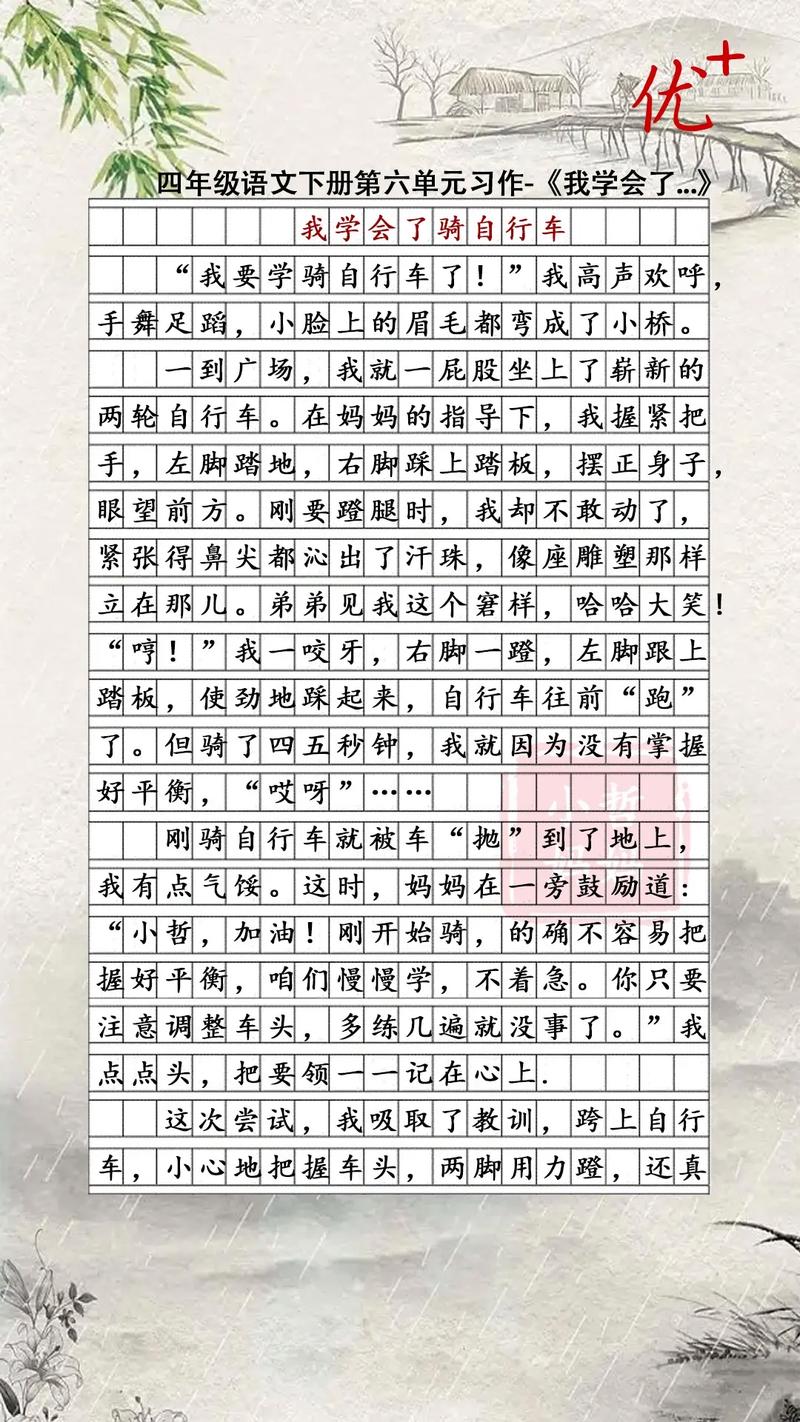 优+
四年级语文下册第六单元习作-《我学会了...》
我学会了骑自行车
“我要学骑自行车了！”我高声欢呼，
手舞足蹈，小脸上的眉毛都弯成了小桥。
一到广场，我就一屁股坐上了崭新的
两轮自行车。在妈妈的指导下，我握紧把
手，左脚踏地，右脚踩上踏板，摆正身子，
眼望前方。刚要蹬腿时，我却不敢动了，
紧张得鼻尖都沁出了汗珠，像座雕塑那样
立在那儿。弟弟见我这个窘样，哈哈大笑！
“哼！”我一咬牙，右脚一蹬，左脚跟上
踏板，使劲地踩起来，自行车往前“跑”
了。但骑了四五秒钟，我就因为没有掌握
好平衡，“哎呀”……
刚骑自行车就被车“抛”到了地上，
我有点气馁。这时，妈妈在一旁鼓励道：
“小哲，加油！刚开始骑，的确不容易把
握好平衡，咱们慢慢学，不着急。你只要
注意调整车头，多练几遍就没事了。”我
点点头，把要领一一记在心上.
这次尝试，我吸取了教训，跨上自行
车，小心地把握车头，两脚用力蹬，还真